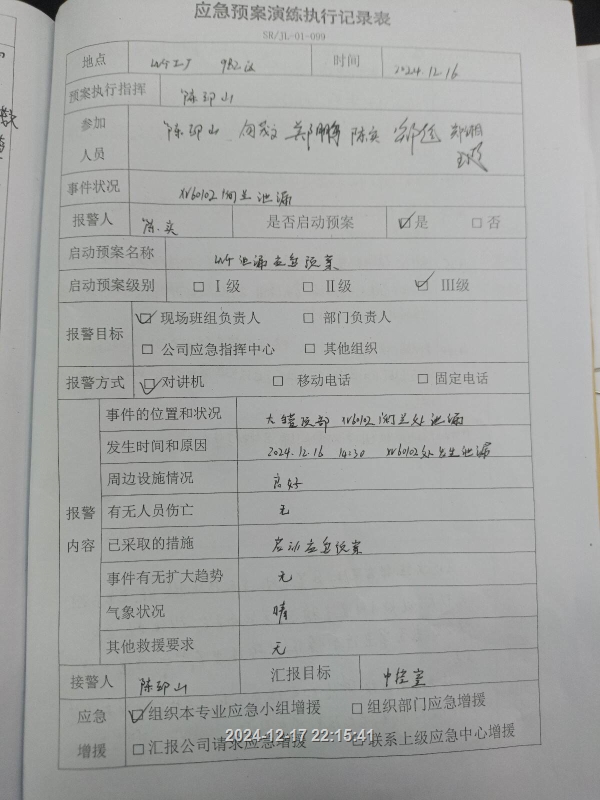 应急预案演练执行记录表
SR/JL-01-099
地点 时间 2024.12.16
预案执行指挥 陈卲山
参加人员 陈卲山 陈实
事件状况 XV60102阀兰泄漏
报警人 陈实 是否启动预案 ☑是 □否
启动预案名称 泄漏应急预案
启动预案级别 □Ⅰ级 □Ⅱ级 ☑Ⅲ级
报警目标 ☑现场班组负责人 □部门负责人
□公司应急指挥中心 □其他组织
报警方式 ☑对讲机 □移动电话 □固定电话
报警内容
事件的位置和状况 XV60102阀兰处泄漏
发生时间和原因 2024.12.16 14:30 XV60102处发生泄漏
周边设施情况 良好
有无人员伤亡 无
已采取的措施 启动应急预案
事件有无扩大趋势 无
气象状况 晴
其他救援要求 无
接警人 陈卲山 汇报目标 中控室
应急增援 ☑组织本专业应急小组增援 □组织部门应急增援
□汇报公司请求应急增援 □联系上级应急中心增援
2024-12-17 22:15:41